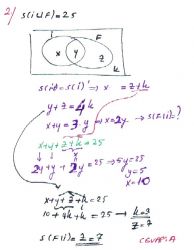 2/ s(i∪F)=25
F
x y z
k
s(i)=s(i)' → x = z+k
y+z=4k
x+y=3.y → x=2y → s(F\i)=?
x+y+z+k=25
2y+y+2y=25 → 5y=25
y=5
x=10
x+y+z+k=25
10+4k+k=25 → k=3
z=7
s(F\i)=z=7
CEVAP:A